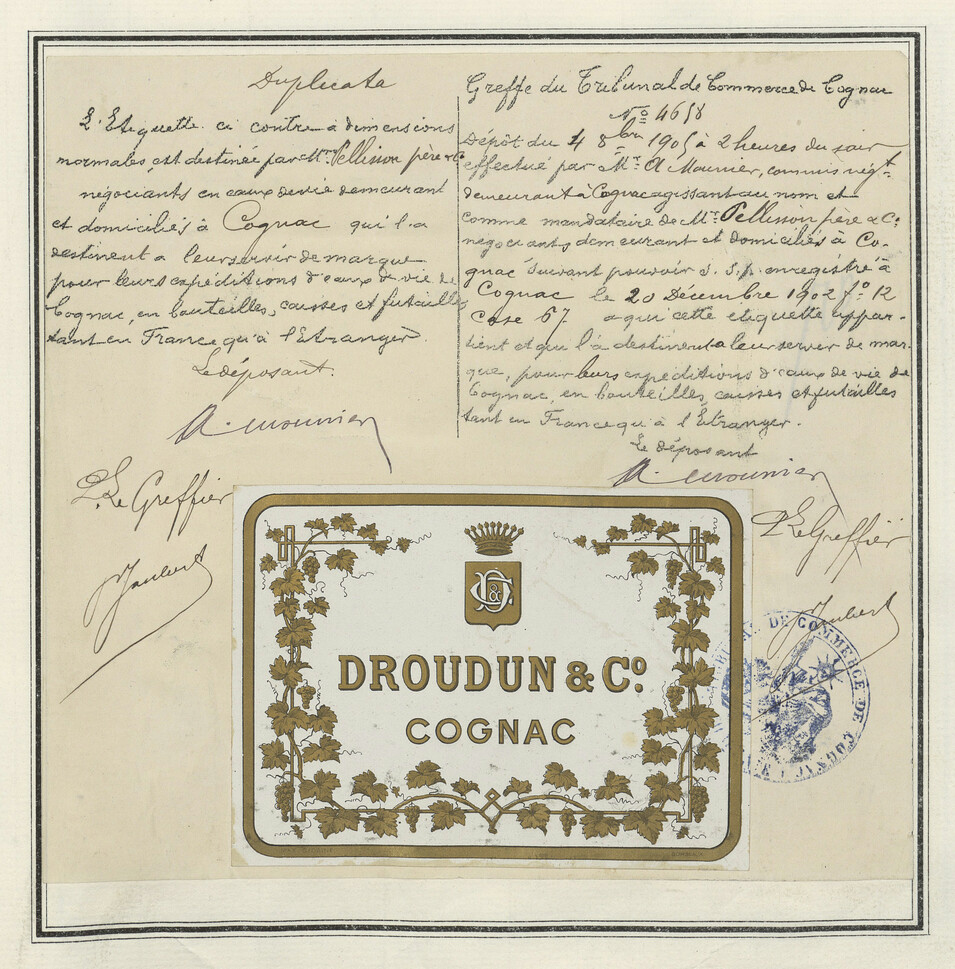 Duplicata
L'Etiquette ci contre à dimensions
normales, est destinée par Mrs Pellisson père & Co
négociants en eaux de vie demeurant
et domiciliés à Cognac qui l'a
destinent a leur servir de marque
pour leurs expéditions d'eaux de vie de
Cognac, en bouteilles, caisses et futailles
tant en France qu'à l'Etranger.
Le déposant.
A. Mounier
P. Le Greffier
Joubert
Greffe du Tribunal de Commerce de Cognac
No 4658
Dépôt du 4 8bre 1905 à 2 heures du soir
effectué par Mr A Mounier, commis négt
demeurant à Cognac agissant au nom et
comme mandataire de Mrs Pellisson père & Co
négociants demeurant et domiciliés à Co-
gnac suivant pouvoir s.s.p. enregistré à
Cognac le 20 Décembre 1902 fo 12
Case 67. a qui cette etiquette appar-
tient et qui l'a destinent a leur server de mar-
que, pour leurs expéditions d'eaux de vie de
Cognac, en bouteilles, caisses et futailles
tant en France qu'à l'Etranger.
Le déposant
A. Mounier
P. Le Greffier
Joubert
D&C
DROUDUN & Co.
COGNAC
DE COMMERCE DE COGNAC